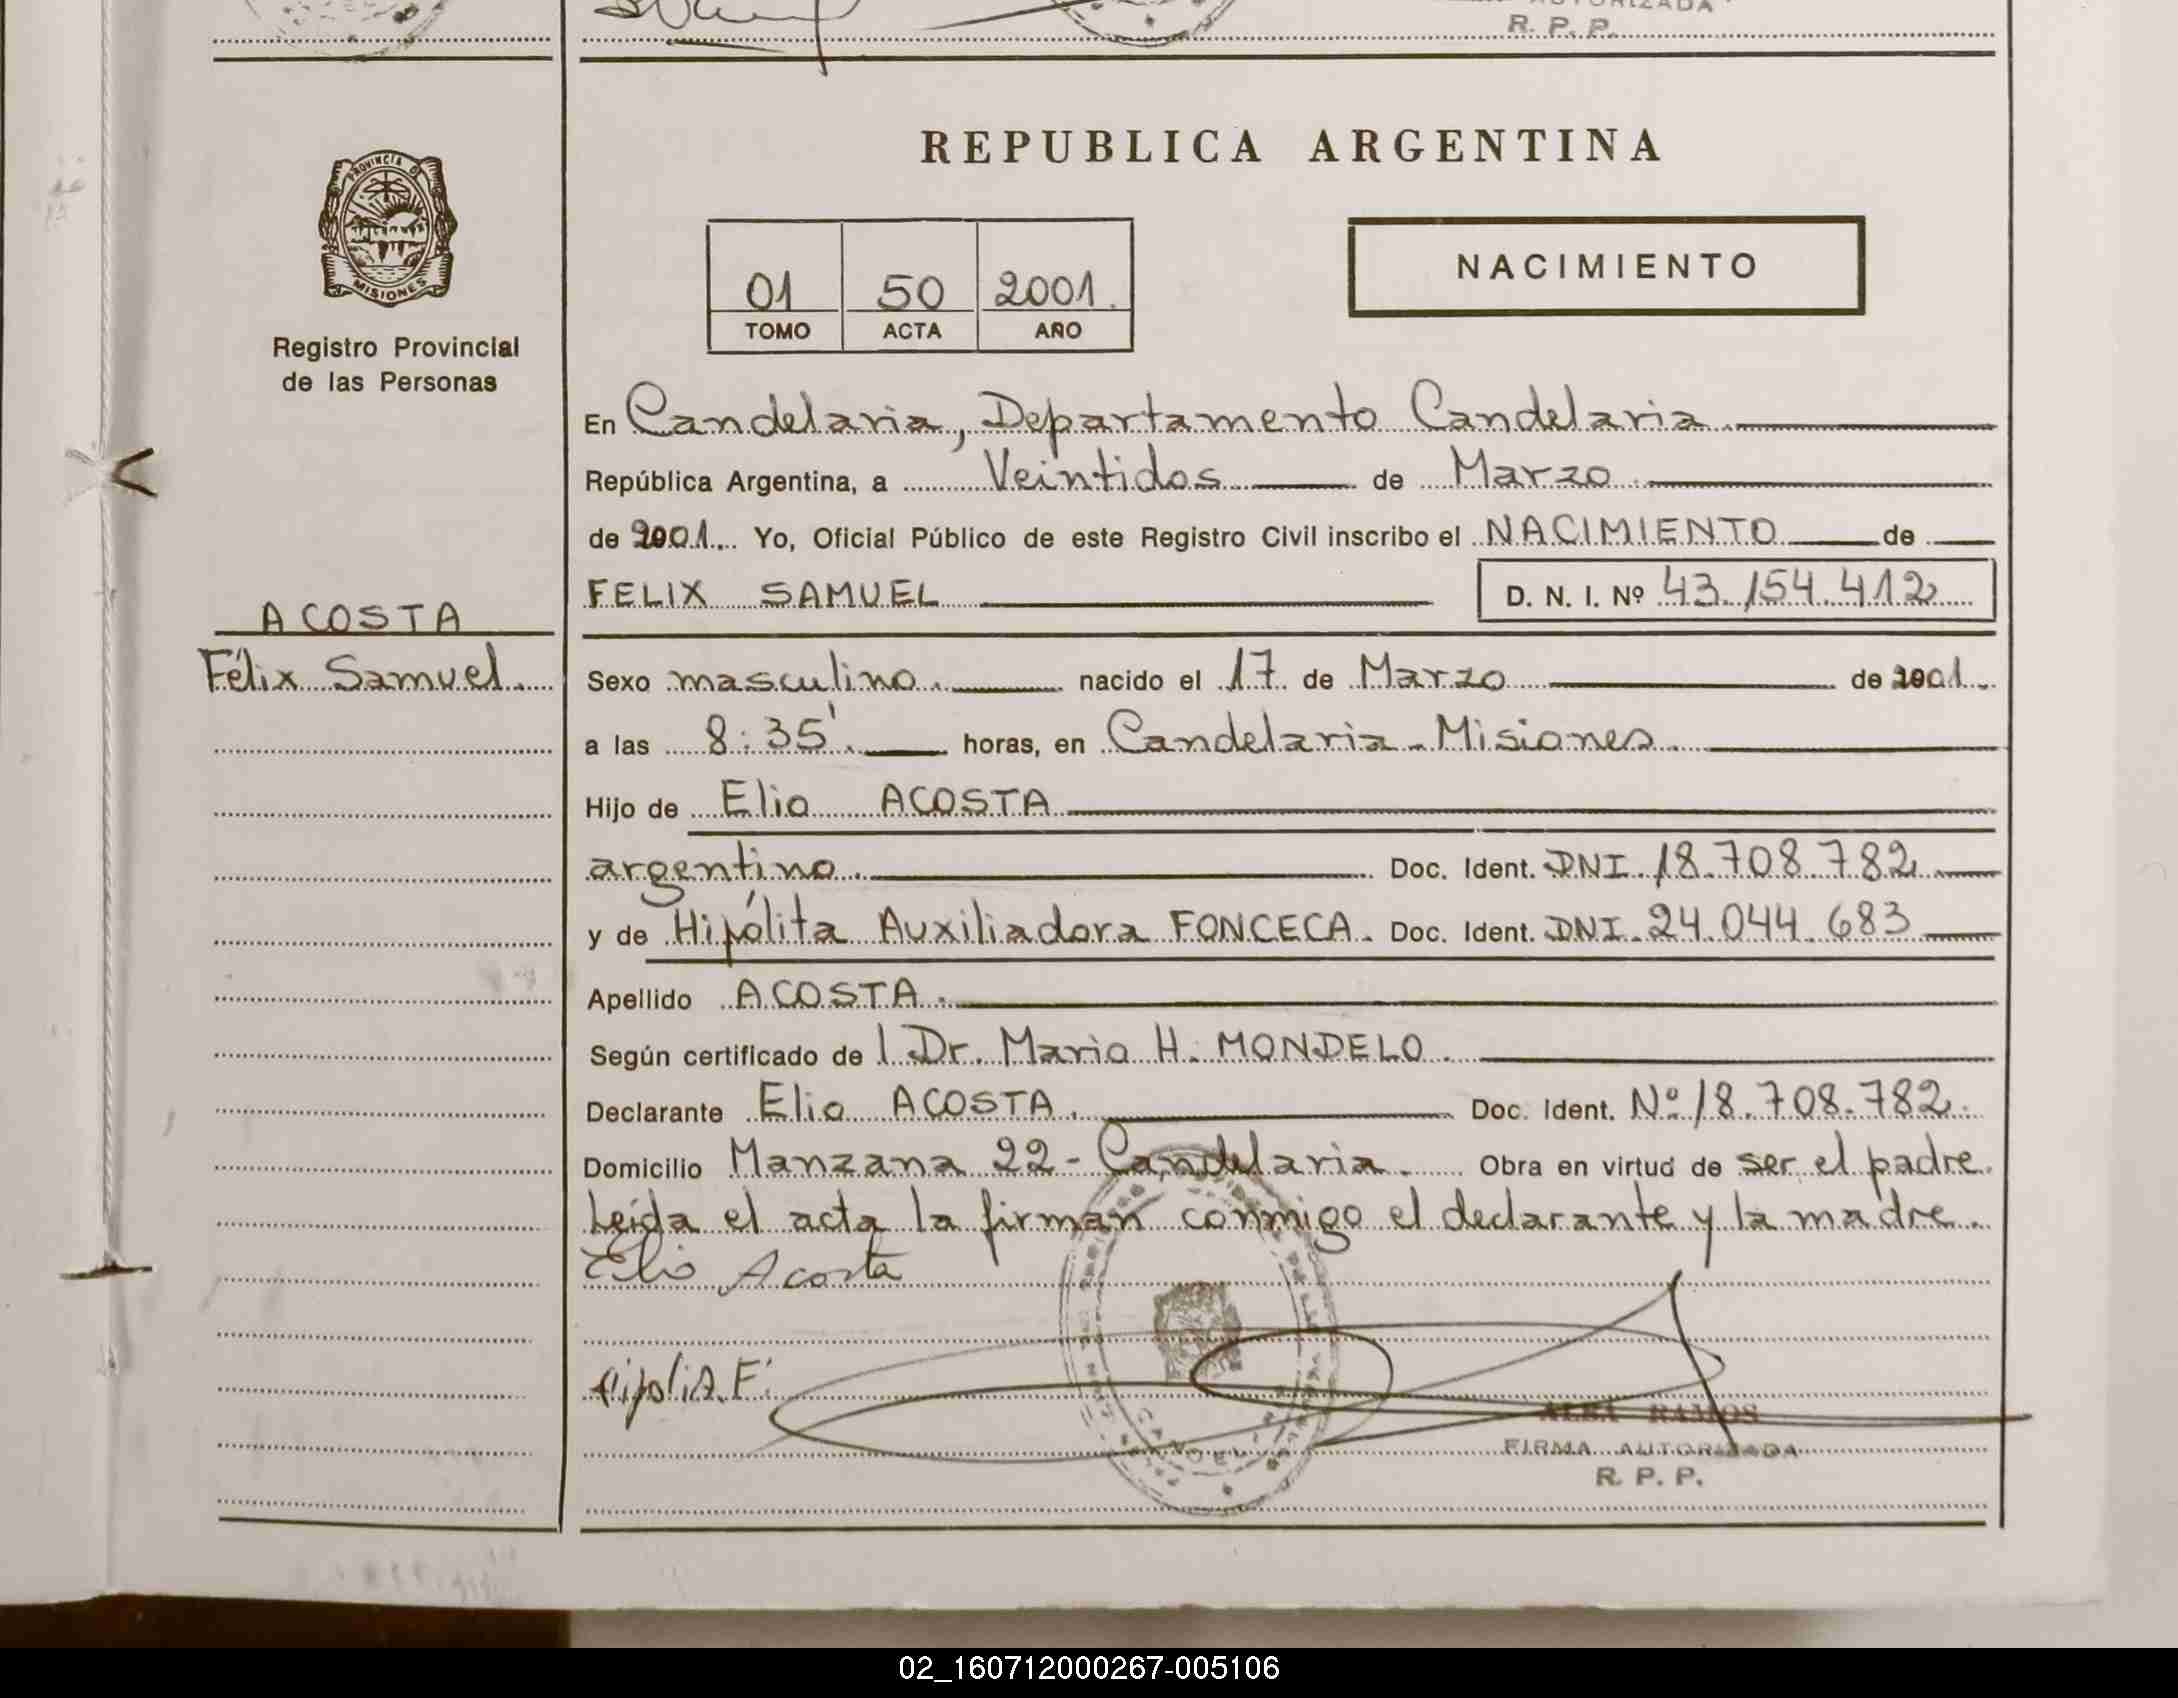 R. P. P.
REPUBLICA ARGENTINA
PROVINCIA D
MISIONES
Registro Provincial
de las Personas
01 50 2001.
TOMO ACTA AÑO
NACIMIENTO
En Candelaria, Departamento Candelaria.
República Argentina, a Veintidos de Marzo.
de 2001. Yo, Oficial Público de este Registro Civil inscribo el NACIMIENTO de
FELIX SAMUEL D. N. I. Nº 43.154.412
ACOSTA
Félix Samuel.
Sexo masculino. nacido el 17 de Marzo de 2001.
a las 8:35'. horas, en Candelaria-Misiones.
Hijo de Elio ACOSTA
argentino. Doc. Ident. DNI.18.708.782
y de Hipólita Auxiliadora FONCECA. Doc. Ident. DNI.24.044.683
Apellido ACOSTA.
Según certificado de l Dr. Mario H. MONDELO.
Declarante Elio ACOSTA. Doc. Ident. Nº 18.708.782.
Domicilio Manzana 22-Candelaria. Obra en virtud de ser el padre.
Leída el acta la firman conmigo el declarante y la madre.
Elio Acosta
ALBA RAMOS
FIRMA AUTORIZADA
R. P. P.
02_160712000267-005106